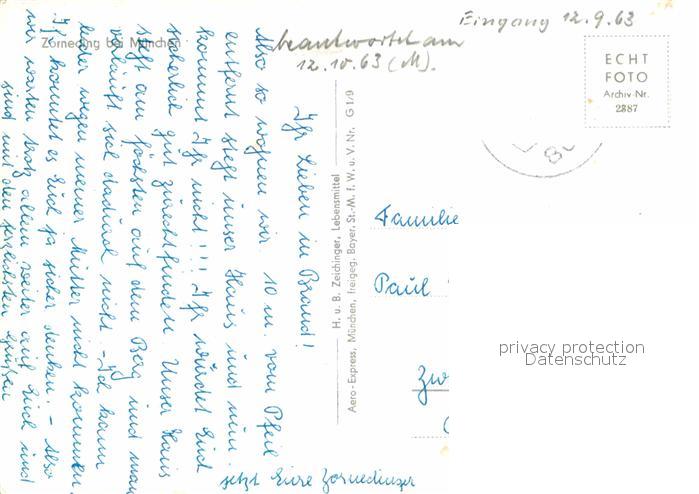 Eingang 12.9.63
beantwortet am
12.10.63 (M).
Zorneding bei München
ECHT
FOTO
Archiv-Nr.
2387
Ihr Lieben in Brand!
Also so wohnen wir 10 m. vom Pfeil
entfernt steht unser Haus und nun
kommt Ihr nicht!!! Ihr würdet Euch
sicherlich gut zurechtfinden. Unser Haus
steht am höchsten auf dem Berg und man
verläuft sich dadurch nicht. - Ich kann
leider wegen meiner Mutter nicht kommen,
Ihr könntet es Euch ja sicher denken. - Also
wir warten trotz allem weiter auf Euch und
sind mit den herzlichsten Grüßen
jetzt Eure Zornedinger
H. u. B. Zeichinger, Lebensmittel
Aero-Express, München, freigeg. Bayer. St.-M. f. W. u. V. Nr. G 1/9
Familie
Paul
Zw
privacy protection
Datenschutz